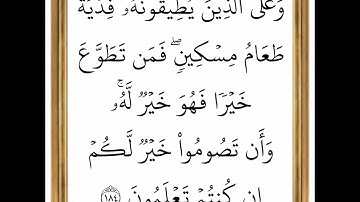 وَعَلَى ٱلَّذِينَ يُطِيقُونَهُۥ فِدْيَةٌ
طَعَامُ مِسْكِينٍۖ فَمَن تَطَوَّعَ
خَيْرًا فَهُوَ خَيْرٌ لَّهُۥۚ
وَأَن تَصُومُوا۟ خَيْرٌ لَّكُمْ
إِن كُنتُمْ تَعْلَمُونَ ١٨٤